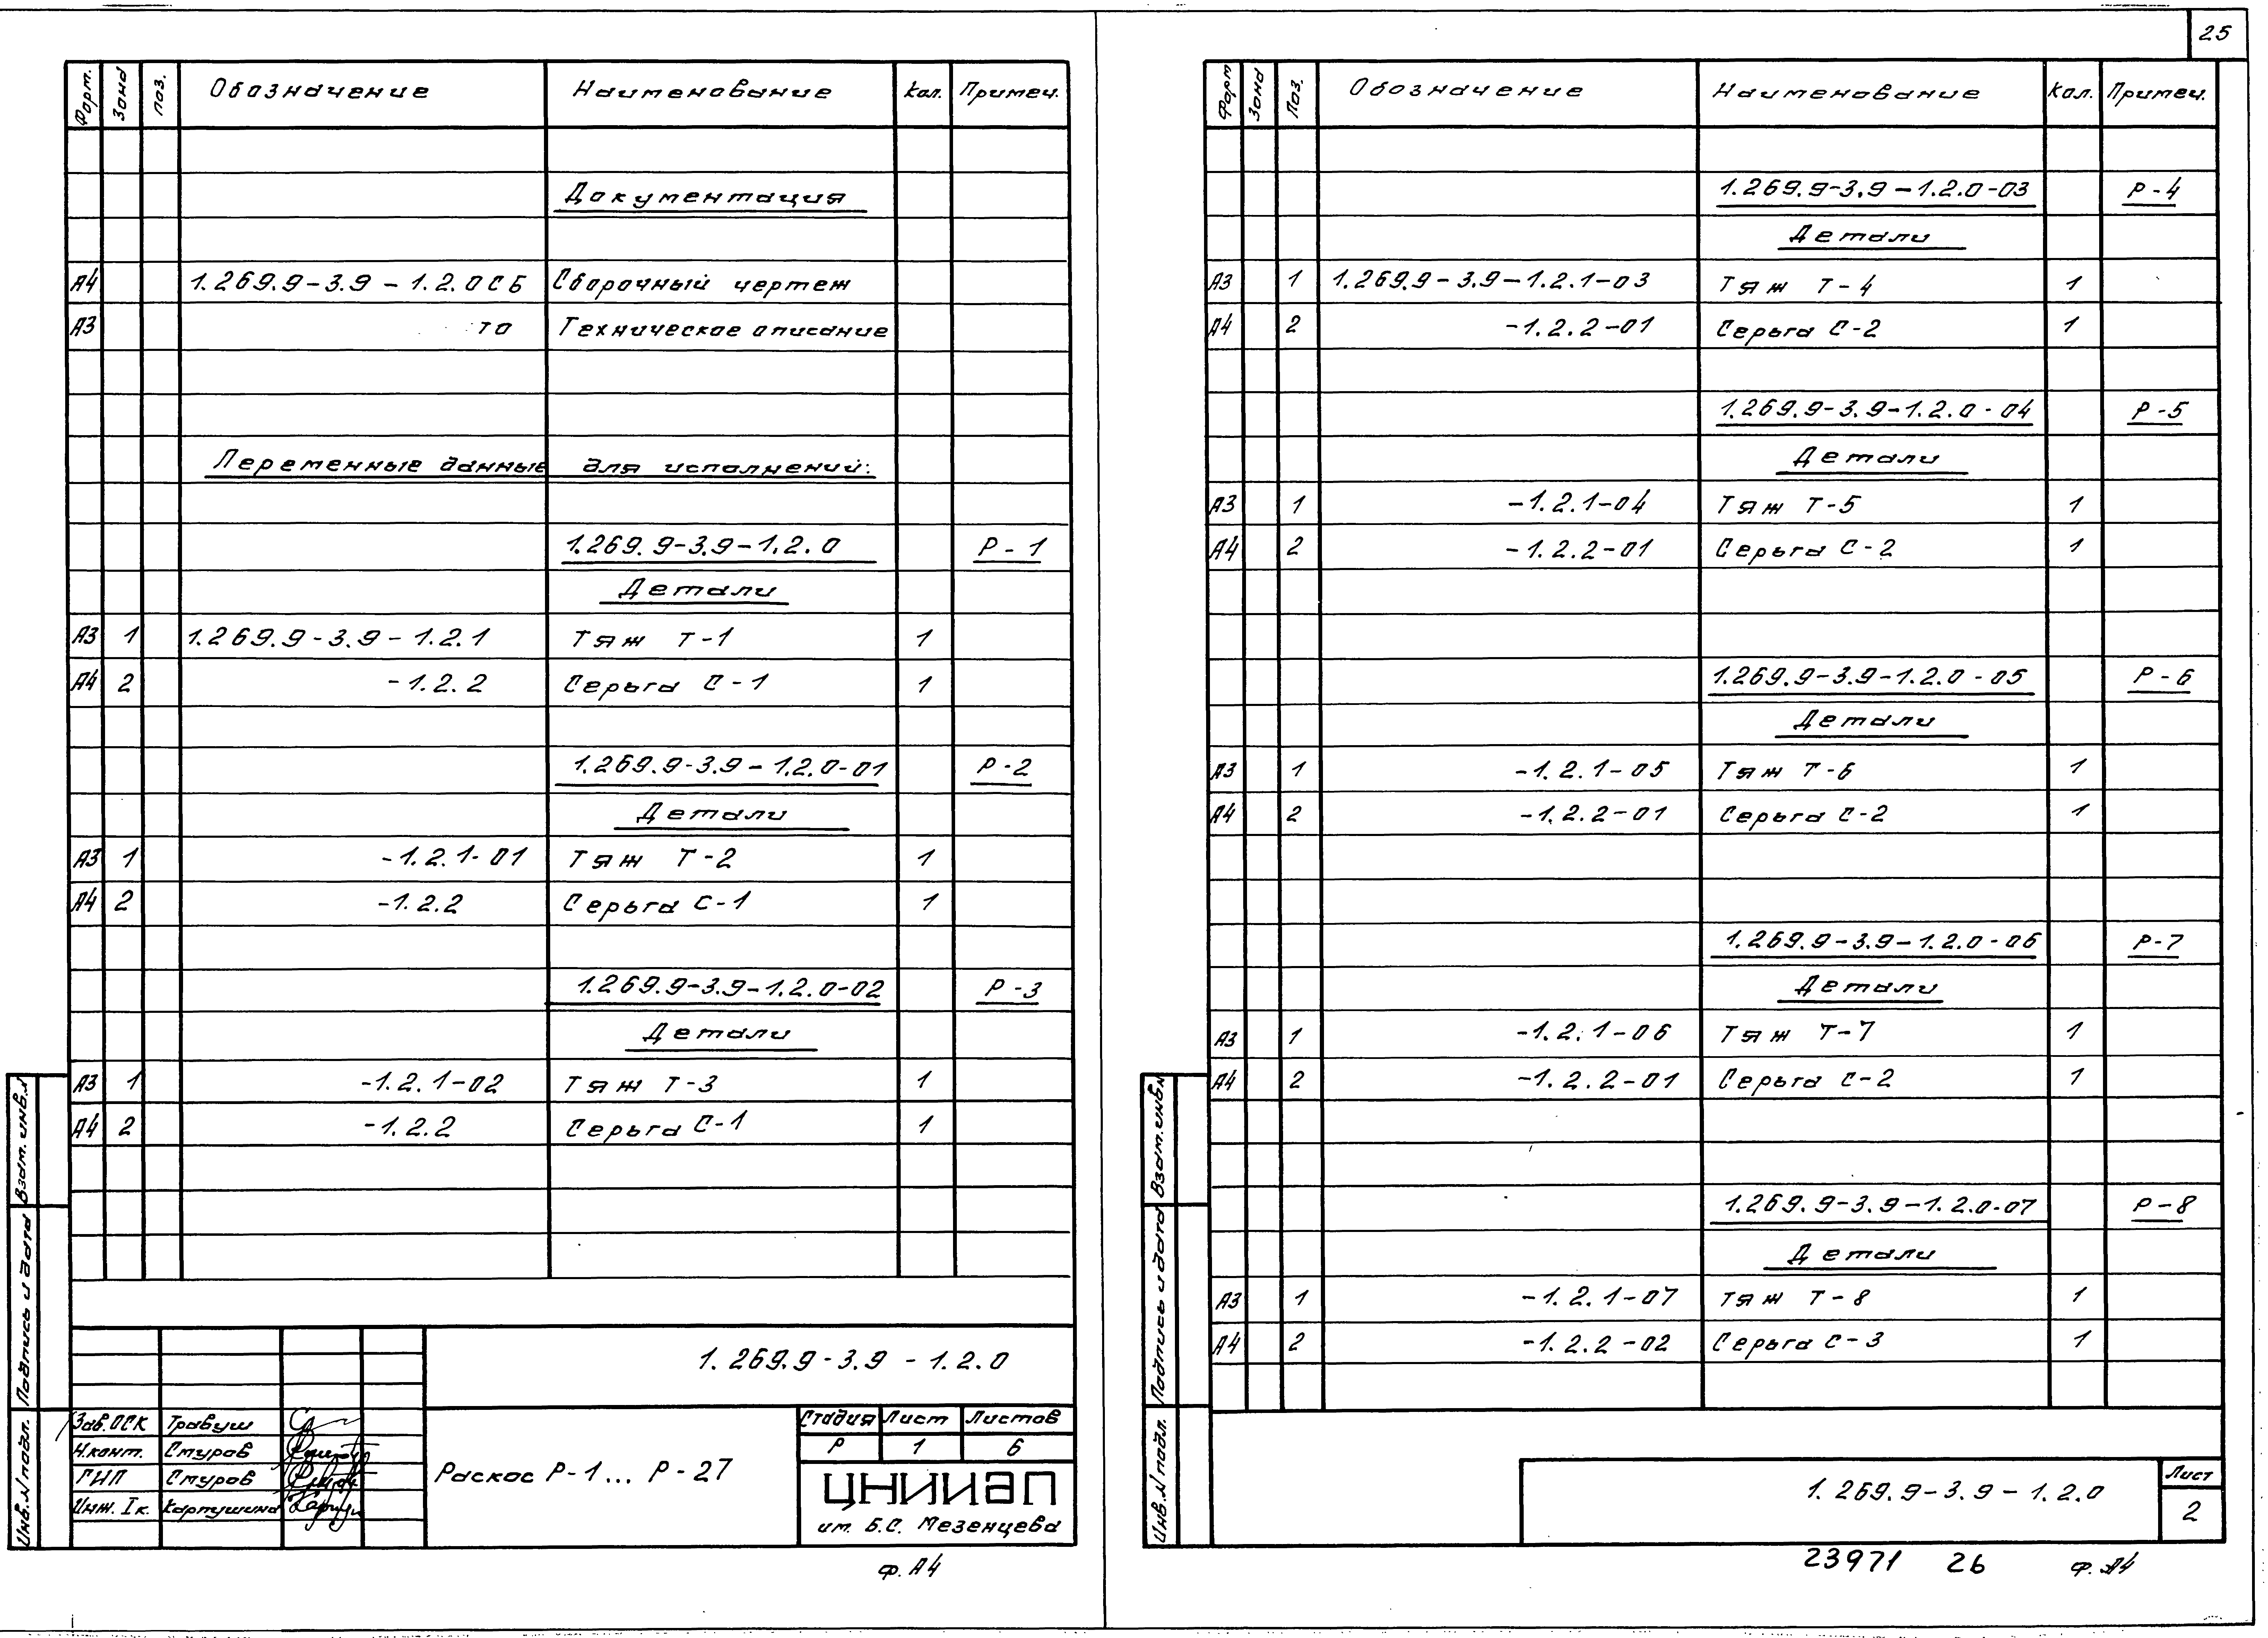 25
Форм. Зона Поз. Обозначение Наименование Кол. Примеч.
Документация
А4 1.269.9-3.9-1.2.0СБ Сборочный чертеж
А3 ТО Техническое описание
Переменные данные для исполнений:
1.269.9-3.9-1.2.0 Р-1
Детали
А3 1 1.269.9-3.9-1.2.1 Тяж Т-1 1
А4 2 -1.2.2 Серьга С-1 1
1.269.9-3.9-1.2.0-01 Р-2
Детали
А3 1 -1.2.1-01 Тяж Т-2 1
А4 2 -1.2.2 Серьга С-1 1
1.269.9-3.9-1.2.0-02 Р-3
Детали
А3 1 -1.2.1-02 Тяж Т-3 1
А4 2 -1.2.2 Серьга С-1 1
Взам. инв.N
Подпись и дата
Инв.N подл.
1.269.9-3.9-1.2.0
Зав.ОСК Травуш
Н.конт. Стуров
ГИП Стуров
Инж. Iк. Картушина
Раскос Р-1... Р-27
Стадия Лист Листов
Р 1 6
ЦНИИЭП
им. Б.С. Мезенцева
Ф. А4
Форм Зона Поз. Обозначение Наименование Кол. Примеч.
1.269.9-3.9-1.2.0-03 Р-4
Детали
А3 1 1.269.9-3.9-1.2.1-03 Тяж Т-4 1
А4 2 -1.2.2-01 Серьга С-2 1
1.269.9-3.9-1.2.0-04 Р-5
Детали
А3 1 -1.2.1-04 Тяж Т-5 1
А4 2 -1.2.2-01 Серьга С-2 1
1.269.9-3.9-1.2.0-05 Р-6
Детали
А3 1 -1.2.1-05 Тяж Т-6 1
А4 2 -1.2.2-01 Серьга С-2 1
1.269.9-3.9-1.2.0-06 Р-7
Детали
А3 1 -1.2.1-06 Тяж Т-7 1
А4 2 -1.2.2-01 Серьга С-2 1
1.269.9-3.9-1.2.0-07 Р-8
Детали
А3 1 -1.2.1-07 Тяж Т-8 1
А4 2 -1.2.2-02 Серьга С-3 1
Взам.инв.N
Подпись и дата
Инв.N подл.
1.269.9-3.9-1.2.0
Лист
2
23971 26 Ф. А4